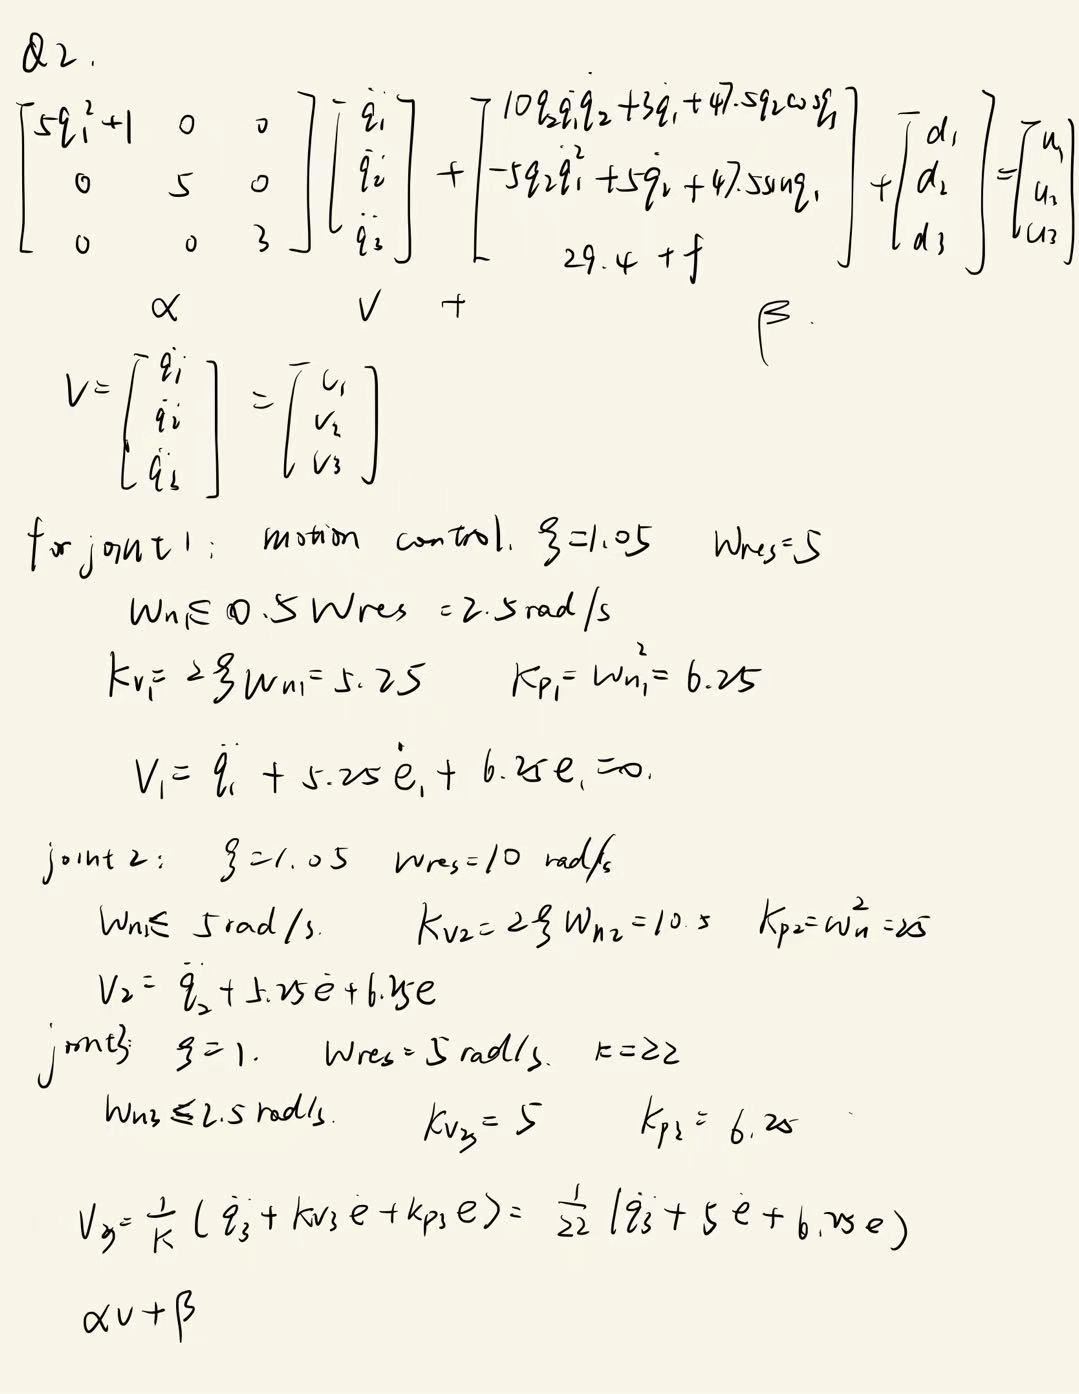 Q2.
[5q₁²+1 0 0; 0 5 0; 0 0 3] [q̈₁; q̈₂; q̈₃] + [10q₂q̇₁q̇₂+3q̇₁+47.5q₂cosq₁; -5q₂q̇₁²+5q̇₂+47.5sinq₁; 29.4+f] + [d₁; d₂; d₃] = [u₁; u₂; u₃]
α V + β.
V= [q̈₁; q̈₂; q̈₃] = [v₁; v₂; v₃]
for joint 1: motion control. ξ=1.05 Wres=5
Wn₁≤ 0.5 Wres =2.5 rad/s
Kv₁= 2ξWn₁= 5.25 Kp₁= Wn₁²= 6.25
V₁= q̈₁ + 5.25 ė₁ + 6.25e₁=0.
joint 2: ξ=1.05 Wres=10 rad/s
Wn₁≤ 5 rad/s. Kv₂=2ξWn₂=10.5 Kp₂=Wn²=25
V₂= q̈₂+5.25ė+6.25e
joint3: ξ=1. Wres=5 rad/s. K=22
Wn₃≤2.5 rad/s. Kv₃= 5 Kp₃= 6.25
V₃= 1/K (q̈₃+Kv₃ė+Kp₃e)= 1/22 (q̈₃+5ė+6.25e)
αv+β